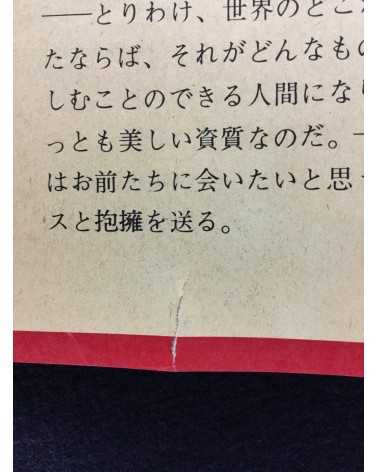 ──とりわけ、世界のどこ
たならば、それがどんなもの
しむことのできる人間になり
っとも美しい資質なのだ。─
はお前たちに会いたいと思っ
スと抱擁を送る。